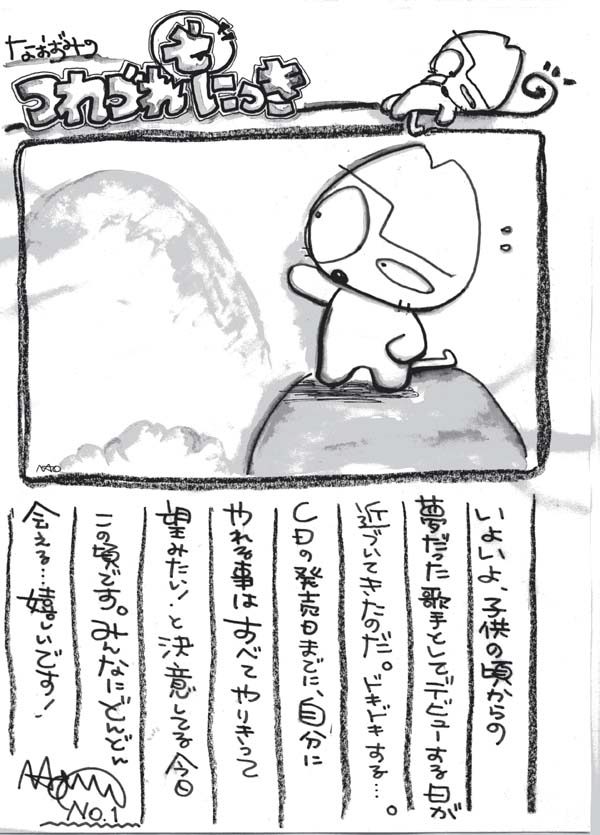 つれづれぜにっき
NAO
いよいよ、子供の頃からの
夢だった歌手としてデビューする日が
近づいてきたのだ。ドキドキする…。
CDの発売日までに、自分に
やれる事はすべてやりきって
望みたい！と決意してる今日
この頃です。みんなにどんどん
会える…嬉しいです！
NO.1